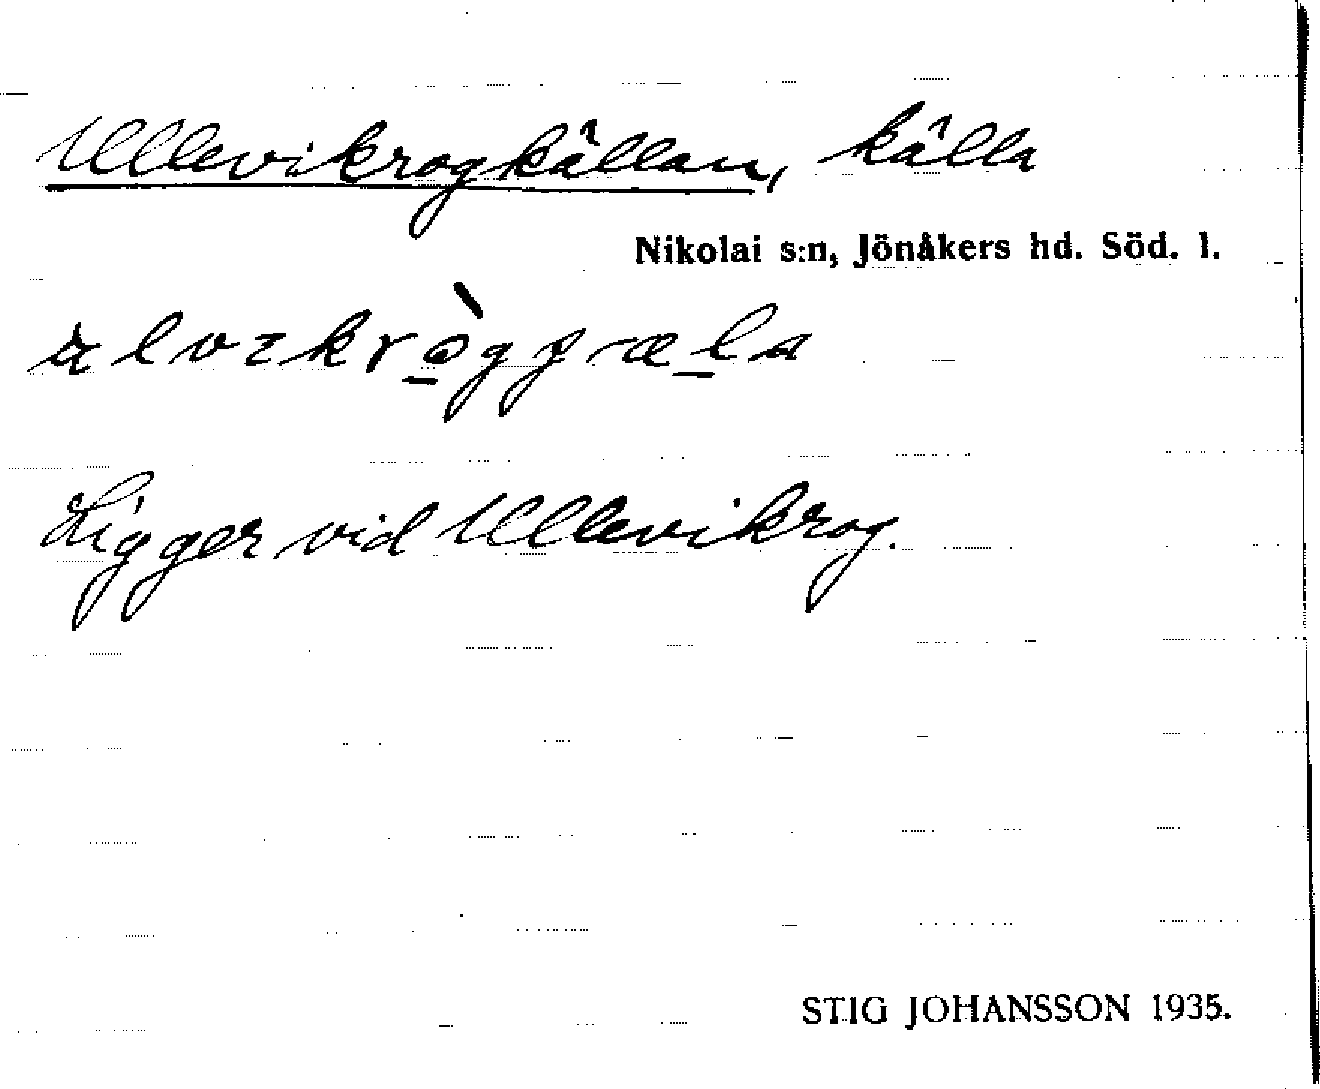 Ullevikrogkällan, källa
Nikolai s:n, Jönåkers hd. Söd. l.
Ligger vid Ullevikrog.
STIG JOHANSSON 1935.